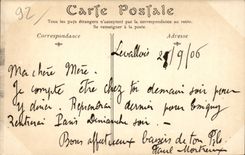 92
Carte Postale
Tous les pays étrangers n'acceptent pas la correspondance au recto.
Se renseigner à la poste.
Correspondance
Adresse
Levallois 2 /9/06
Ma chère Mère.
Je compte être chez toi demain soir pour
y diner. Reprendrai dernier pour
rentrerai Paris Dimanche soir.
Bons affectueux baisers de ton fils
Paul